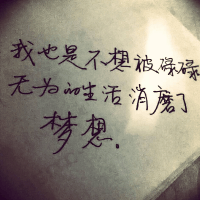 我也是不想被碌碌
无为的生活消磨了
梦想。